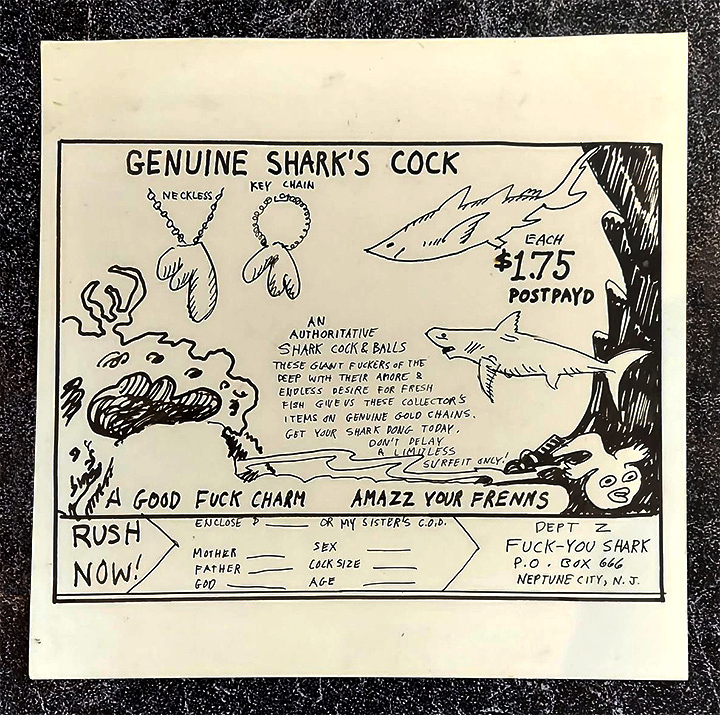 GENUINE SHARK'S COCK
NECKLESS
KEY CHAIN
EACH
$1.75
POSTPAYD
AN
AUTHORITATIVE
SHARK COCK & BALLS
THESE GIANT FUCKERS OF THE
DEEP WITH THEIR AMORE &
ENDLESS DESIRE FOR FRESH
FISH GIVE US THESE COLLECTOR'S
ITEMS ON GENUINE GOLD CHAINS.
GET YOUR SHARK DONG TODAY.
DON'T DELAY
A LIMITLESS
SURFEIT ONLY!
A GOOD FUCK CHARM AMAZZ YOUR FRENNS
RUSH
NOW!
ENCLOSE $ ____ OR MY SISTER'S C.O.D.
MOTHER ____ SEX ____
FATHER ____ COCK SIZE ____
GOD ____ AGE ____
DEPT Z
FUCK-YOU SHARK
P.O. BOX 666
NEPTUNE CITY, N.J.